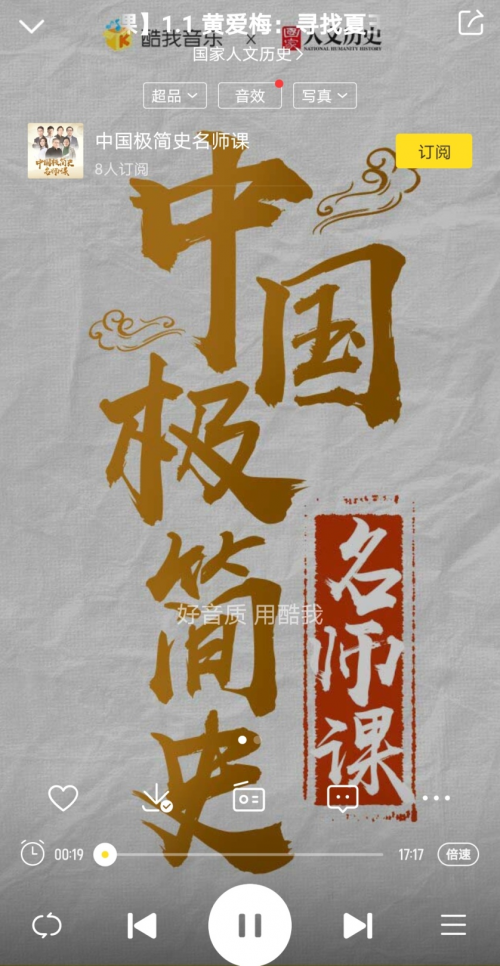 课】1.1 黄爱梅：寻找夏
酷我音乐 x 国家人文历史
NATIONAL HUMANITY HISTORY
国家人文历史
超品
音效
写真
中国极简史名师课
8人订阅
订阅
中国极简史名师课
中国
极简史
名师课
好音质 用酷我
00:19
17:17
倍速